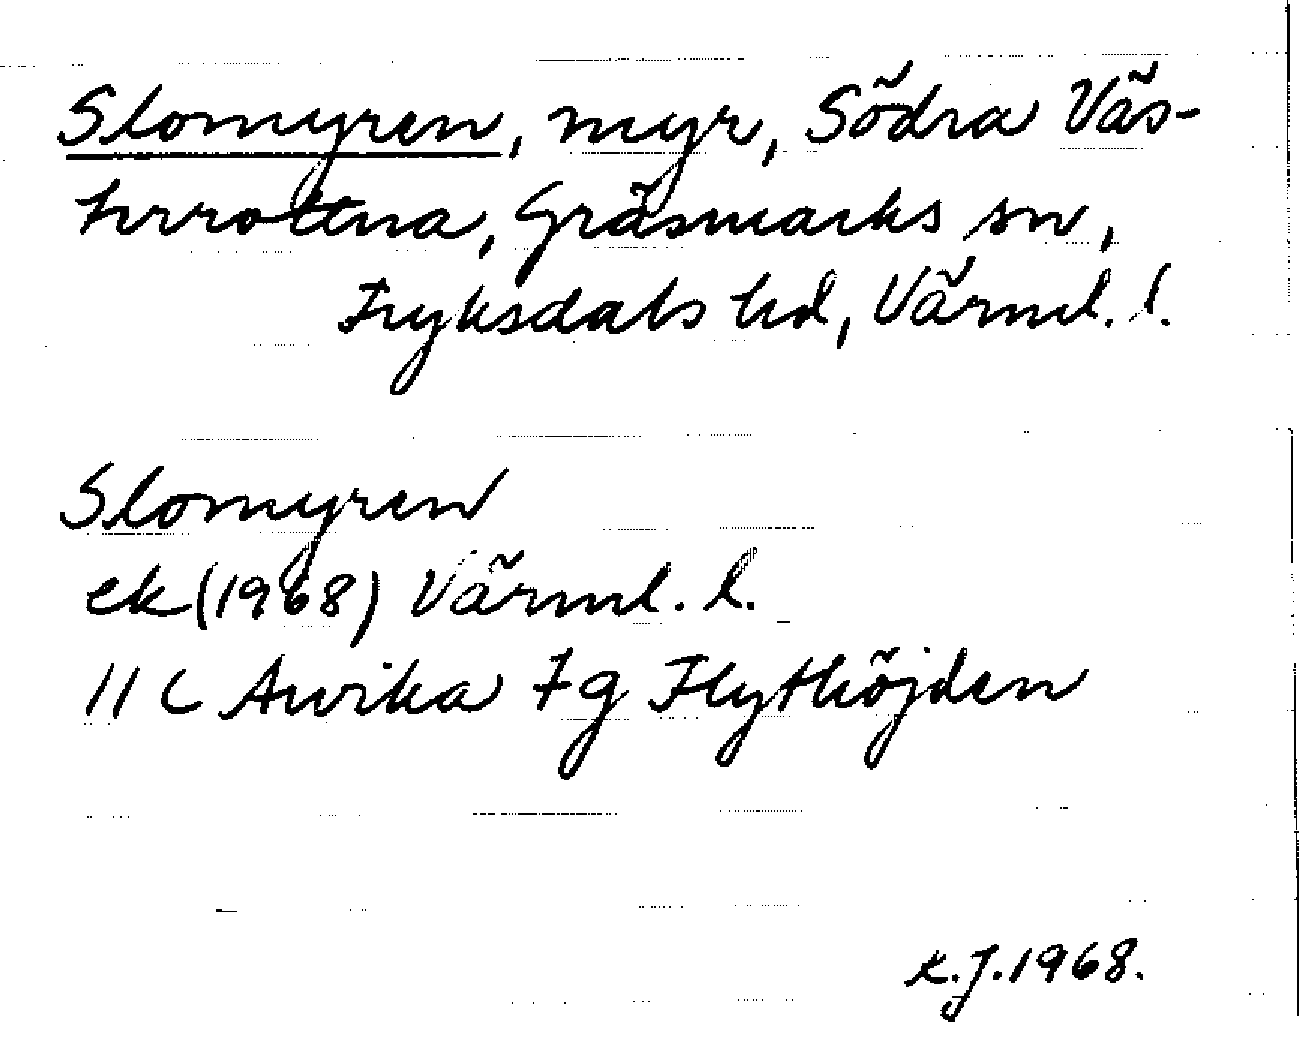 Slomyren, myr, Södra Väs-
terrottna, Gräsmarks sn,
Fryksdals hd, Värml. l.
Slomyren
ek (1968) Värml. l.
11 C Arvika 7g Flythöjden
K.J. 1968.